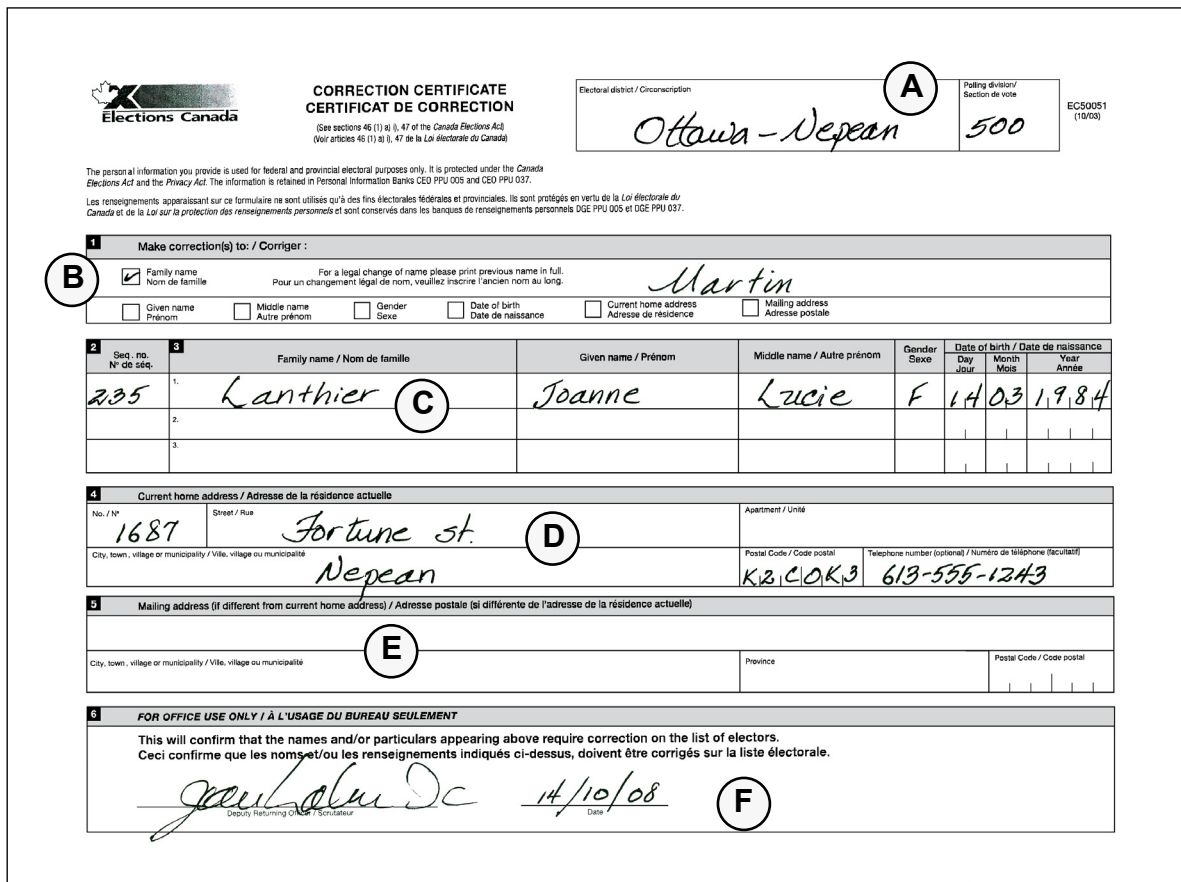 Elections Canada
CORRECTION CERTIFICATE
CERTIFICAT DE CORRECTION
(See sections 46 (1) a) i), 47 of the Canada Elections Act)
(Voir articles 46 (1) a) i), 47 de la Loi électorale du Canada)
Electoral district / Circonscription
A
Ottawa-Nepean
Polling division/
Section de vote
500
EC50051
(10/03)
The personal information you provide is used for federal and provincial electoral purposes only. It is protected under the Canada
Elections Act and the Privacy Act. The information is retained in Personal Information Banks CEO PPU 005 and CEO PPU 037.
Les renseignements apparaissant sur ce formulaire ne sont utilisés qu'à des fins électorales fédérales et provinciales. Ils sont protégés en vertu de la Loi électorale du
Canada et de la Loi sur la protection des renseignements personnels et sont conservés dans les banques de renseignements personnels DGE PPU 005 et DGE PPU 037.
1 Make correction(s) to: / Corriger :
B
Family name
Nom de famille
For a legal change of name please print previous name in full.
Pour un changement légal de nom, veuillez inscrire l'ancien nom au long.
Martin
Given name
Prénom
Middle name
Autre prénom
Gender
Sexe
Date of birth
Date de naissance
Current home address
Adresse de résidence
Mailing address
Adresse postale
2 Seq. no.
N° de séq.
3 Family name / Nom de famille
Given name / Prénom
Middle name / Autre prénom
Gender
Sexe
Date of birth / Date de naissance
Day
Jour
Month
Mois
Year
Année
235 1. Lanthier C Joanne Lucie F 14 03 1984
2.
3.
4 Current home address / Adresse de la résidence actuelle
No. / N° Street / Rue Apartment / Unité
1687 Fortune st. D
City, town, village or municipality / Ville, village ou municipalité
Nepean
Postal Code / Code postal
K2C0K3
Telephone number (optional) / Numéro de téléphone (facultatif)
613-555-1243
5 Mailing address (if different from current home address) / Adresse postale (si différente de l'adresse de la résidence actuelle)
E
City, town, village or municipality / Ville, village ou municipalité
Province
Postal Code / Code postal
6 FOR OFFICE USE ONLY / À L'USAGE DU BUREAU SEULEMENT
This will confirm that the names and/or particulars appearing above require correction on the list of electors.
Ceci confirme que les noms et/ou les renseignements indiqués ci-dessus, doivent être corrigés sur la liste électorale.
14/10/08 F
Deputy Returning Officer / Scrutateur
Date